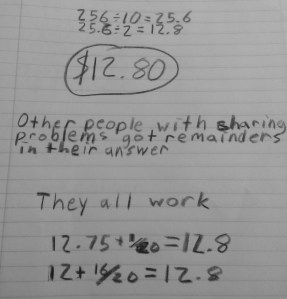 256÷10=25.6
25.6÷2=12.8
$12.80
Other people with sharing
problems got remainders
in their answer
They all work
12.75+1/20=12.8
12+16/20=12.8